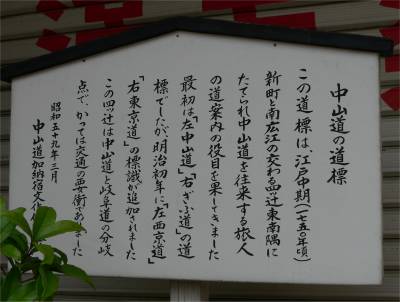 中山道の道標
この道標は、江戸中期(一七五〇年頃)
新町と南広江の交わる四ッ辻東南隅に
たてられ中山道を往来する旅人
の道案内の役目を果してきました
最初は「左中山道」「右ぎふ道」の道
標でしたが、明治初年に「左西京道」
「右東京道」の標識が追加されました
この四ッ辻は中山道と岐阜道の分岐
点で、かつては交通の要衝でありました
昭和五十九年三月
中山道加納宿文化保